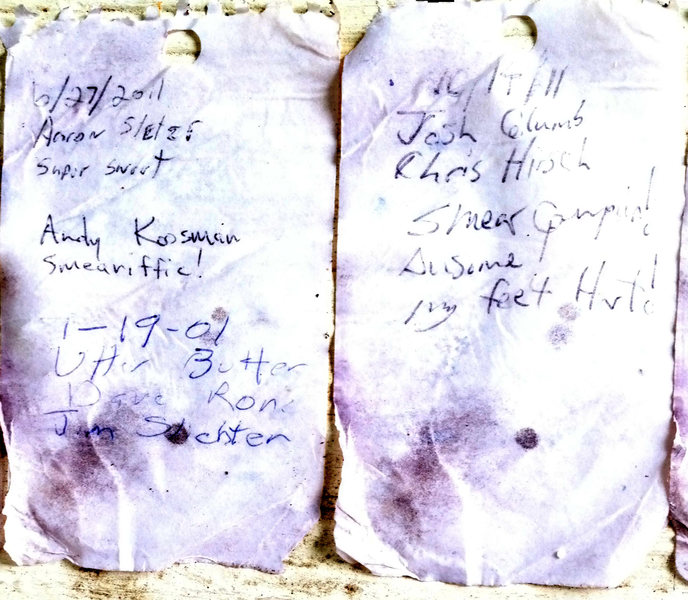 6/27/2011
Aaron
Super sweet
Andy Koosman
Smeariffic!
1-19-01
Utter Butter
Dave Ron
Jim
Josh Columb
Chris Hirsch
Smear Campain!
Ausome
my feet Hurt!